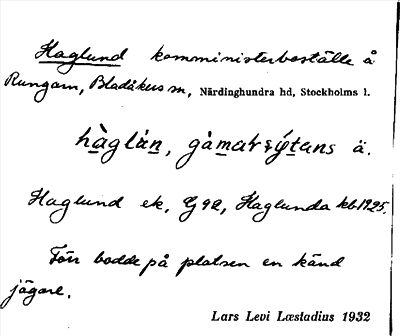 Haglund komministerboställe å
Rungarn, Bladåkers sn, Närdinghundra hd, Stockholms l.
hàglún, gàmarsýtans ä.
Haglund ek, G 92, Haglunda kb 1925.
Förr bodde på platsen en känd
jägare.
Lars Levi Læstadius 1932